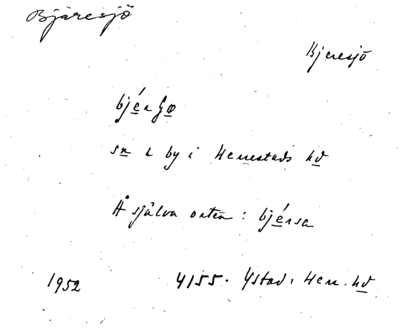 Bjäresjö
Bjeresjö
bjéṛʃo
sn o by i Herrestads hd
På själva orten: bjérsa
1952 4155. Ystad, Herr. hd